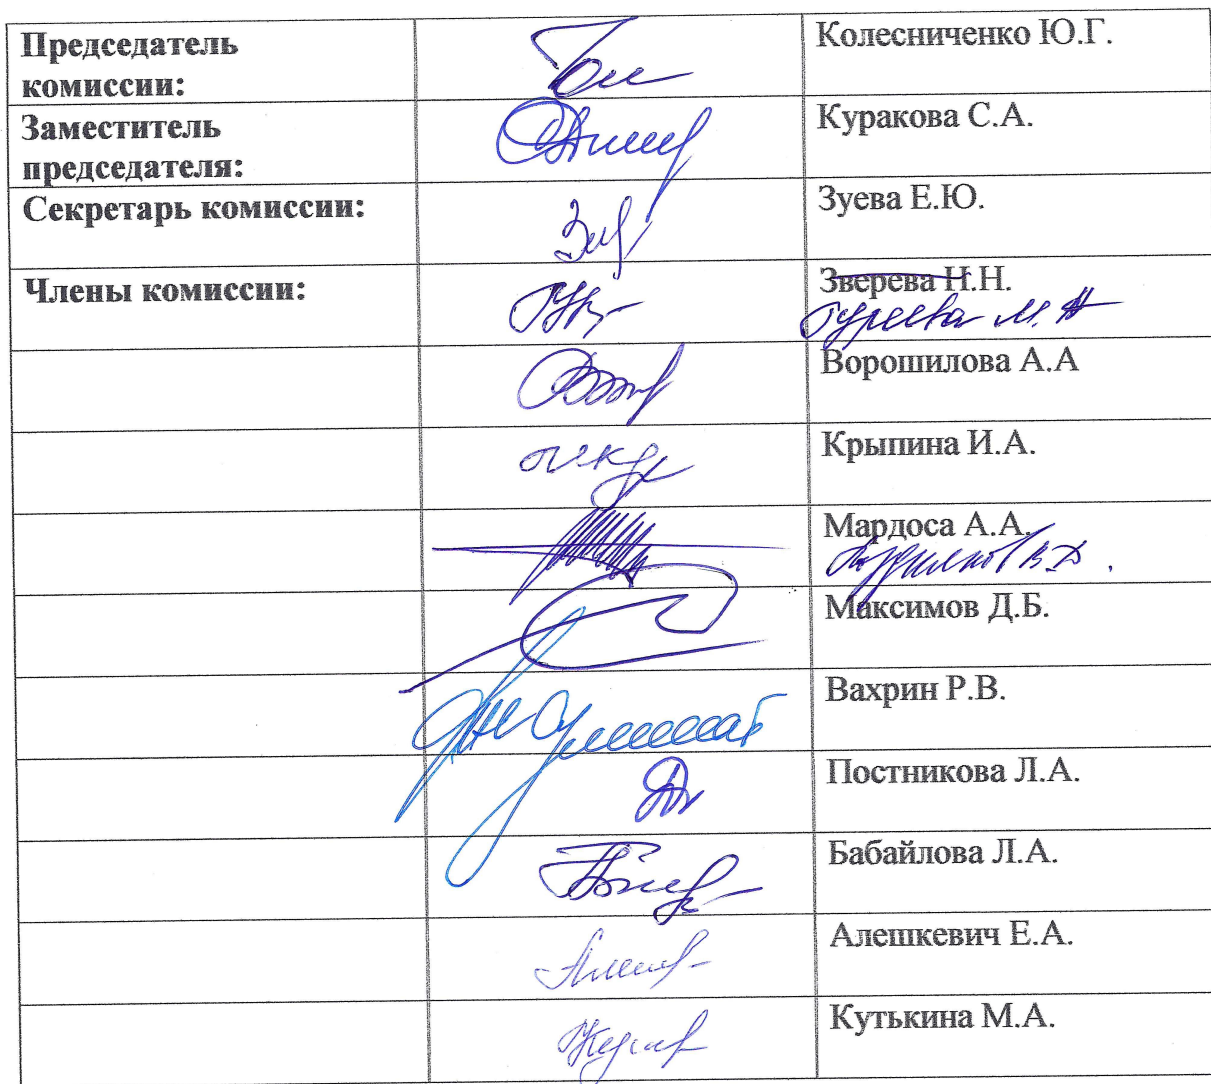 Председатель
комиссии:
Колесниченко Ю.Г.
Заместитель
председателя:
Куракова С.А.
Секретарь комиссии:
Зуева Е.Ю.
Члены комиссии:
Зверева Н.Н.
Гуреева М.А
Ворошилова А.А
Крыпина И.А.
Мардоса А.А.
В.Д.
Максимов Д.Б.
Вахрин Р.В.
Постникова Л.А.
Бабайлова Л.А.
Алешкевич Е.А.
Кутькина М.А.